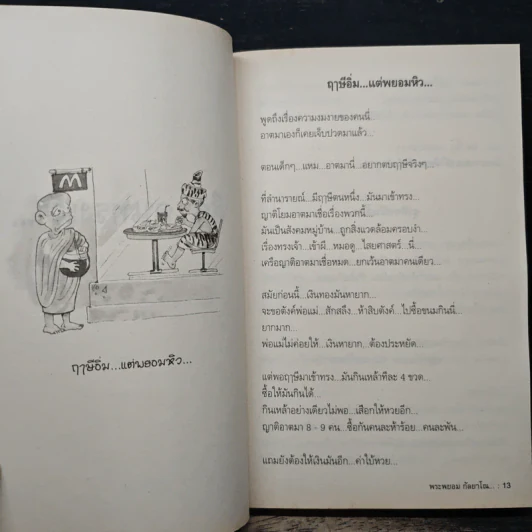 M
4
ฤๅษีอิ่ม...แต่พยอมหิว...
ฤๅษีอิ่ม...แต่พยอมหิว...
พูดถึงเรื่องความงมงายของคนนี่...
อาตมาเองก็เคยเจ็บปวดมาแล้ว...
ตอนเด็กๆ...แหม...อาตมานี่...อยากตบฤๅษีจริงๆ...
ที่ลำนารายณ์...มีฤๅษีตนหนึ่ง...มันมาเข้าทรง...
ญาติโยมอาตมาเชื่อเรื่องพวกนี้...
มันเป็นสังคมหมู่บ้าน...ถูกสิ่งแวดล้อมครอบงำ...
เรื่องทรงเจ้า...เข้าผี...หมอดู...ไสยศาสตร์...นี่...
เครือญาติอาตมาเชื่อหมด...ยกเว้นอาตมาคนเดียว...
สมัยก่อนนี้...เงินทองมันหายาก...
จะขอตังค์พ่อแม่...สักสลึง...ห้าสิบตังค์...ไปซื้อขนมกินนี่...
ยากมาก...
พ่อแม่ไม่ค่อยให้...เงินหายาก...ต้องประหยัด...
แต่พอฤๅษีมาเข้าทรง...มันกินเหล้าทีละ 4 ขวด...
ซื้อให้มันกินได้...
กินเหล้าอย่างเดียวไม่พอ...เสือกให้หวยอีก...
ญาติอาตมา 8 - 9 คน...ซื้อกันคนละห้าร้อย...คนละพัน...
แถมยังต้องให้เงินมันอีก...ค่าใบ้หวย...
พระพยอม กัลยาโณ... : 13